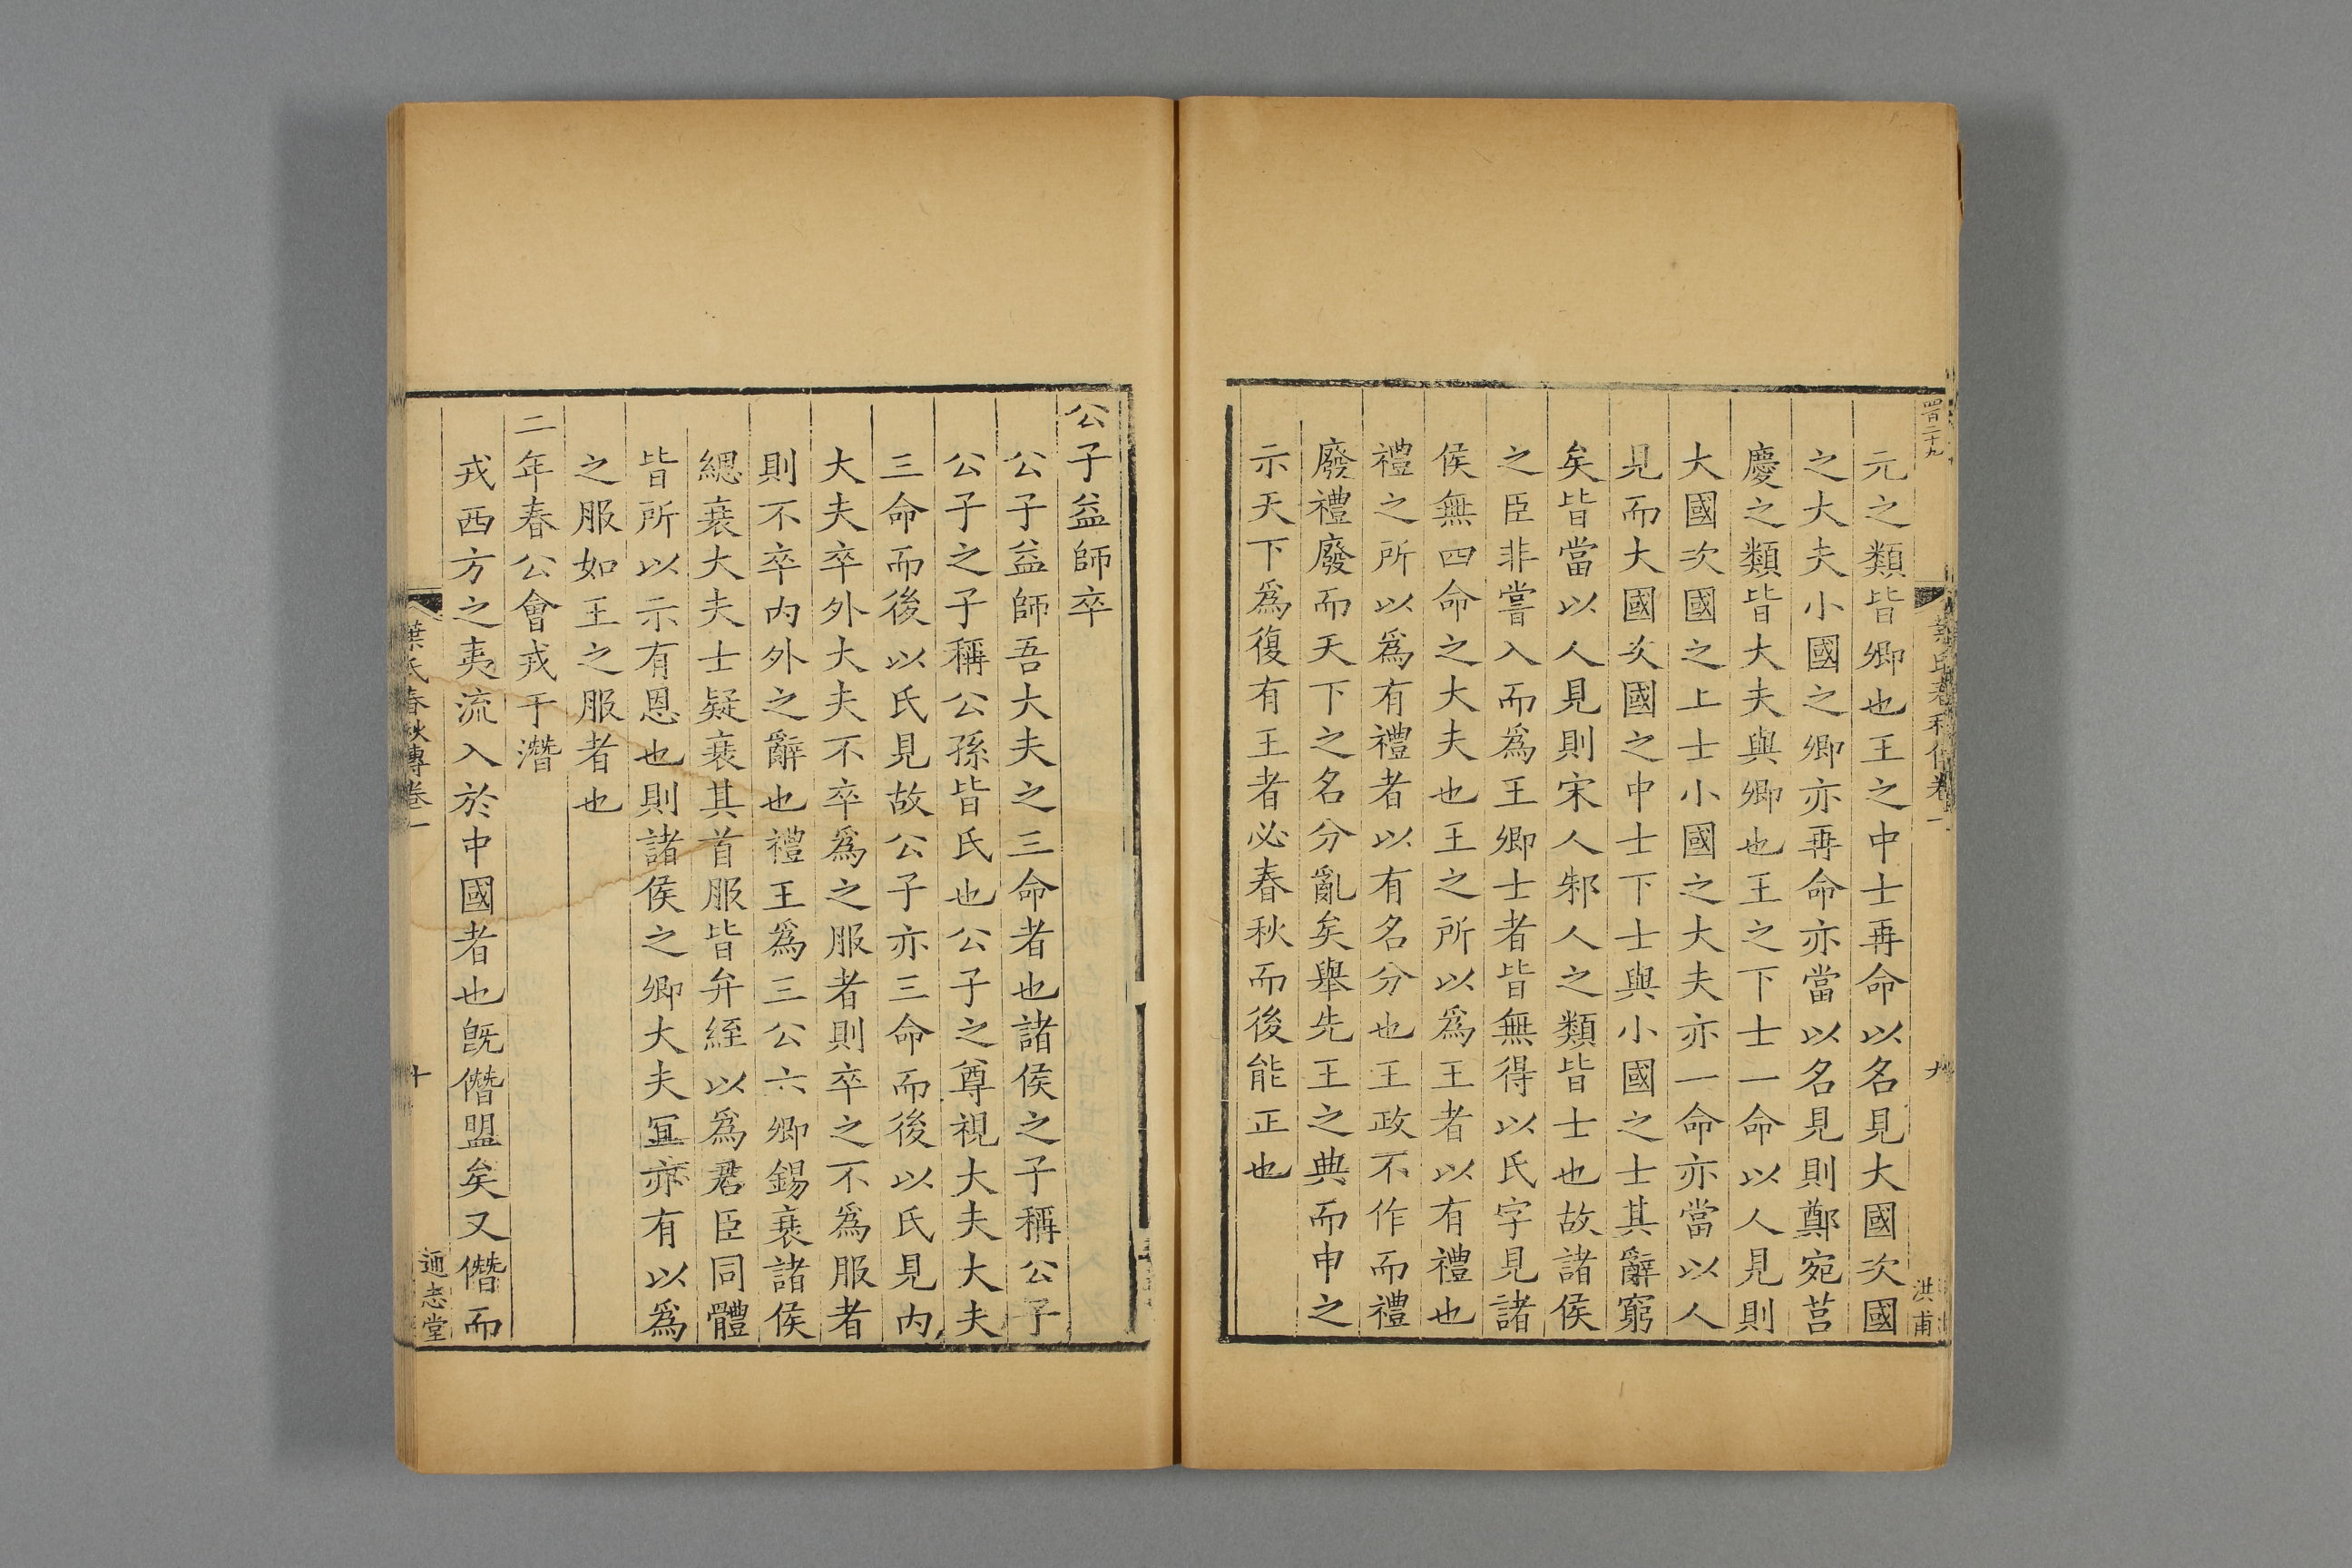 四百二十九
葉氏春秋傳卷一
九
洪甫
元之類皆卿也王之中士再命以名見大國次國
之大夫小國之卿亦再命亦當以名見則鄭宛莒
慶之類皆大夫與卿也王之下士一命以人見則
大國次國之上士小國之大夫亦一命亦當以人
見而大國次國之中士下士與小國之士其辭窮
矣皆當以人見則宋人邾人之類皆士也故諸侯
之臣非嘗入而爲王卿士者皆無得以氏字見諸
侯無四命之大夫也王之所以爲王者以有禮也
禮之所以爲有禮者以有名分也王政不作而禮
廢禮廢而天下之名分亂矣舉先王之典而申之
示天下爲復有王者必春秋而後能正也
公子益師卒
公子益師吾大夫之三命者也諸侯之子稱公子
公子之子稱公孫皆氏也公子之尊視大夫大夫
三命而後以氏見故公子亦三命而後以氏見内
大夫卒外大夫不卒爲之服者則卒之不爲服者
則不卒内外之辭也禮王爲三公六卿錫衰諸侯
緦衰大夫士疑衰其首服皆弁絰以爲君臣同體
皆所以示有恩也則諸侯之卿大夫冝亦有以爲
之服如王之服者也
二年春公會戎于潛
戎西方之夷流入於中國者也旣僭盟矣又僭而
葉氏春秋傳卷一
十
通志堂